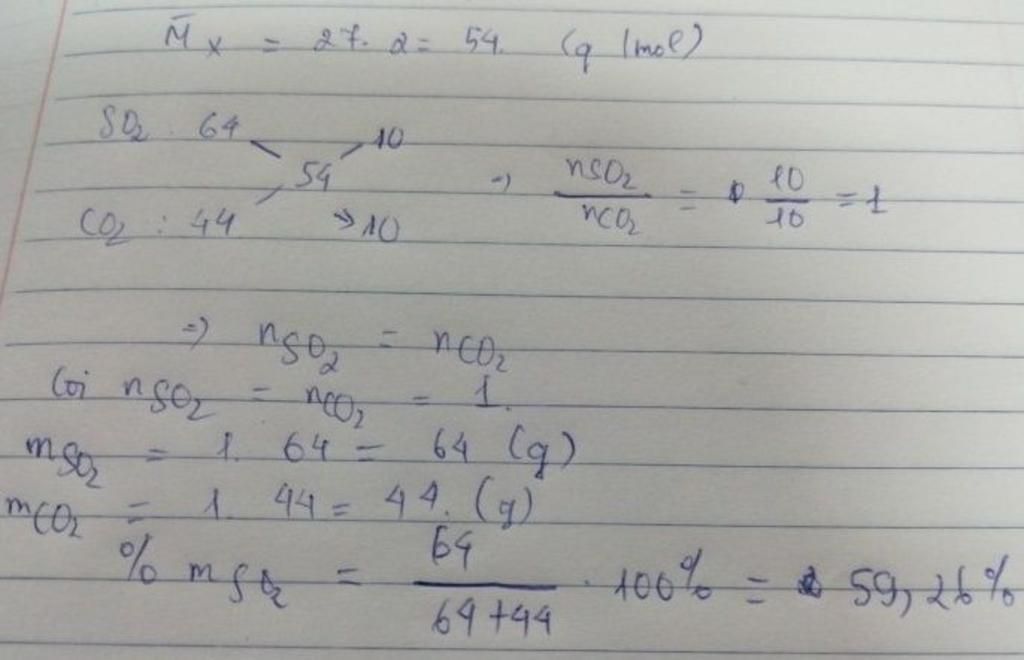 M̄x = 27. 2 = 54. (g/mol)
SO₂ : 64 10
54 => nSO₂/nCO₂ = 10/10 = 1
CO₂ : 44 10
=> nSO₂ = nCO₂
Coi nSO₂ = nCO₂ = 1.
mSO₂ = 1. 64 = 64 (g)
mCO₂ = 1. 44 = 44. (g)
% mSO₂ = 64/(64+44) . 100% = 59,26%